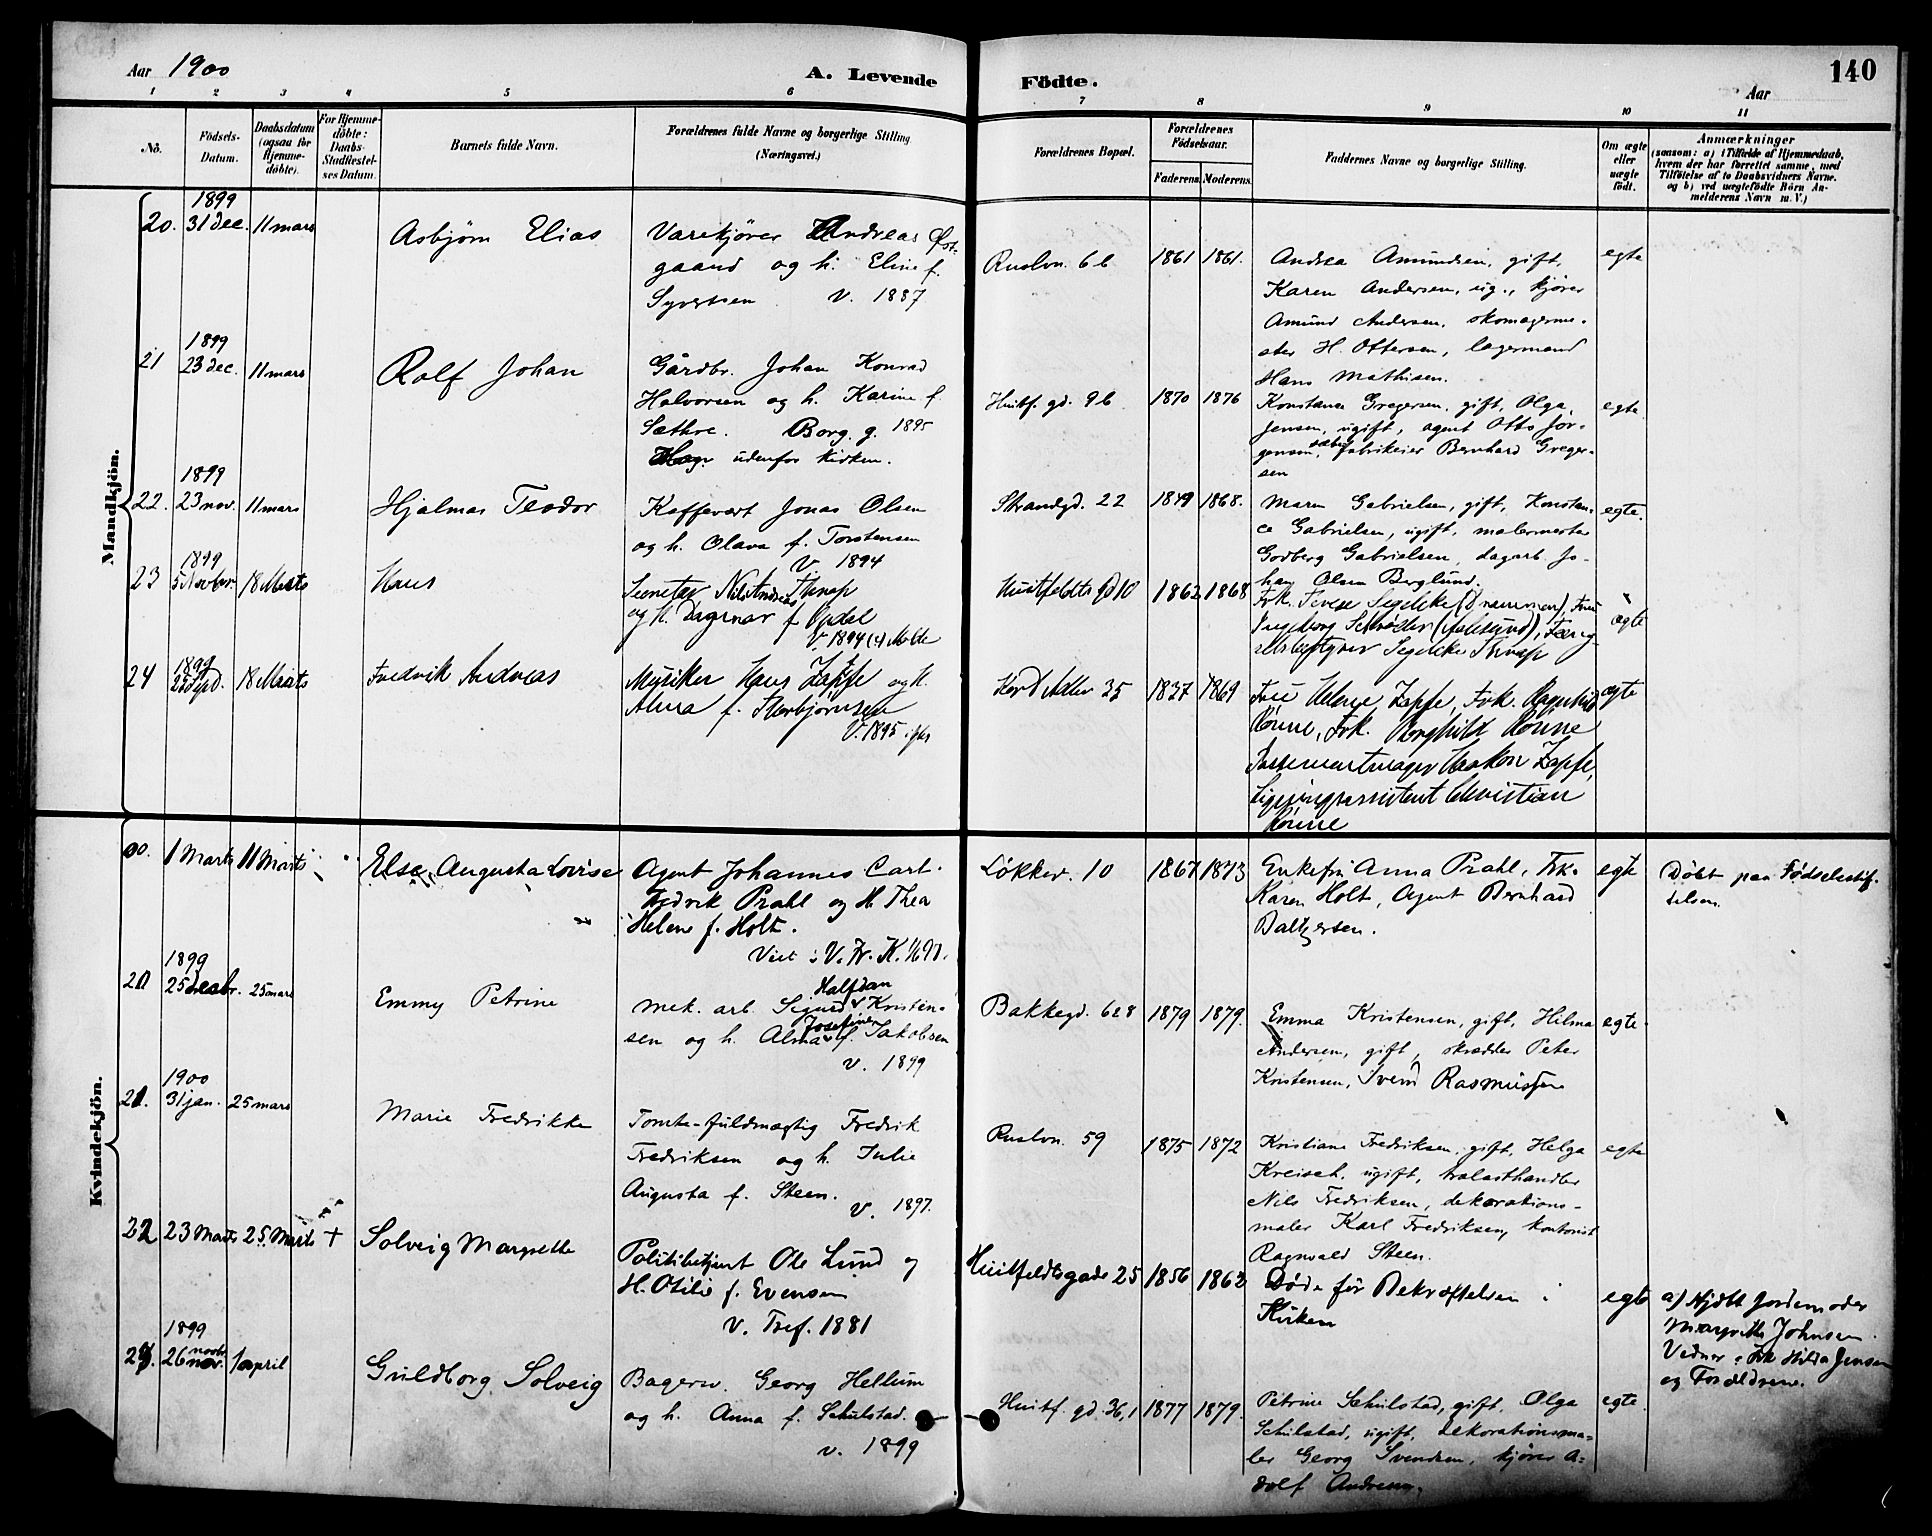 Aar 1900
A. Levende Födte.
140
Aar
1 2 3 4 5 6 7 8 9 10 11
No.
Födsels-
Datum.
Daabsdatum
(ogsaa for
Hjemme-
döbte).
For Hjemme-
döbte:
Daabs-
Stadfæstel-
ses Datum.
Barnets fulde Navn.
Forældrenes fulde Navne og borgerlige Stilling
(Næringsvei.)
Forældrenes Bopæl.
Forældrenes
Födselsaar.
Faderens Moderens
Faddernes Navne og borgerlige Stilling.
Om ægte
eller
uægte
födt.
Anmærkninger
(saasom: a) i Tilfælde af Hjemmedaab,
hvem der har forrettet samme, med
Tilföielse af to Daabsvidners Navne,
og b) ved uægtefödte Börn An-
melderens Navn m. V.)
Mandkjön.
20. 1899 31 dec. 11 mars
Asbjørn Elias
Varekjører Andreas Øst-
gaard og h. Eline f.
Syvertsen v. 1887
Ruslvn. 6 b
1861 1861.
Andrea Amundsen, gift,
Karen Andersen, ug., kjører
Amund Andersen, skomagerme-
ster H. Ottersen, lagermand
Hans Mathisen.
egte
21 1899 23 dec. 11 mars
Rolf Johan
Gårdbr. Johan Konrad
Halvorsen og h. Karine f.
Sæthre. Borg. g. 1895
udenfor kirken.
Huitf. gd. 9 b
1870 1876
Konstance Gregersen, gift, Olga
Jensen, ugift, agent Otto Jør-
gensen, sæbefabrikeier Bernhard Greger-
sen
egte
22. 1899 23 nov. 11 mars
Hjalmar Teodor
Kaffevert Jonas Olsen
og h. Olava f. Torstensen
V. 1894
Strandgd. 22
1849 1868.
Maren Gabrielsen, gift, Konstan-
ce Gabrielsen, ugift, malermester
Godberg Gabrielsen, dagarb. Jo-
han Olsen Berglund.
egte.
23 1899 5 Novbr. 18 Marts
Hans
Nils Andreas
og H. Dagmar f. Opdal
V. 1894 Molde
Huitfeldts gd 10
1862 1868
Frk. Segelcke (Drammen), Fru
Ingeborg Schrøder (Aalesund),
Segelcke
ægte
24 1899 18 Marts
Fredrik Andreas
Musiker Hans Zapffe og H.
Alma f. Thorbjørnsen
V. 1895
Kort Adler 35
1837 1869
Fru Helene Zapffe, Frk. Ragnhild
Rønne, Frk. Borghild Rønne
Haakon Zapffe,
Christian
Rønne
ægte
Kvindekjön.
20. 1 Marts 11 Marts
Else Augusta Lovise
Agent Johannes Carl
Fredrik Prahl og H. Thea
Helene f. Holt.
Viet i V. Fr. K.
Løkkev. 10
1867 1873
Enkefru Anna Prahl, Frk.
Karen Holt, Agent Bernhard
Baltzersen.
egte
Døbt paa Fødselsstif-
telsen.
1899 25 desbr. 25 mars
Emmy Petrine
Halfdan
mek. arb. Sigurd Kristen-
Josefine
sen og h. Alma f. Jakobsen
v. 1899
Bakkegd.
1879 1879.
Emma Kristensen, gift, Hilma
Andersen, gift, skrædder Peter
Kristensen, Svend Rasmussen
egte.
21. 1900 31 jan. 25 mars
Marie Fredrikke
Tomte-fuldmægtig Fredrik
Fredriksen og h. Julie
Augusta f. Steen.
v. 1897.
Ruslvn. 59
1875 1872
Kristiane Fredriksen, gift, Helga
Kreisch, ugift, trælasthandler
Nils Fredriksen, dekorations-
maler Karl Fredriksen, kontorist
Ragnvald Steen.
egte
22 23 Marts 25 Marts +
Solveig Margrethe
Politibetjent Ole Lund og
H. Otilie f. Evensen
V. Tref. 1881
Huitfeldtsgade 25
1856 1862
Døde før Bekræftelsen i
Kirken
egte
a) Hjdbt Jordemoder
Margrethe Johnsen.
Vidner: Frk Hilda Jensen
og Forældrene.
1899 26 novbr. 1 april
Guldborg Solveig
Bagersv. Georg Hellum
og h. Anna f. Schulstad.
v. 1899
Huitf. gd. 36,1
1877 1879.
Petrine Schulstad, gift, Olga
Schulstad, ugift, dekorationsma-
ler Georg Svendsen, kjører A-
dolf Andresen.
egte.